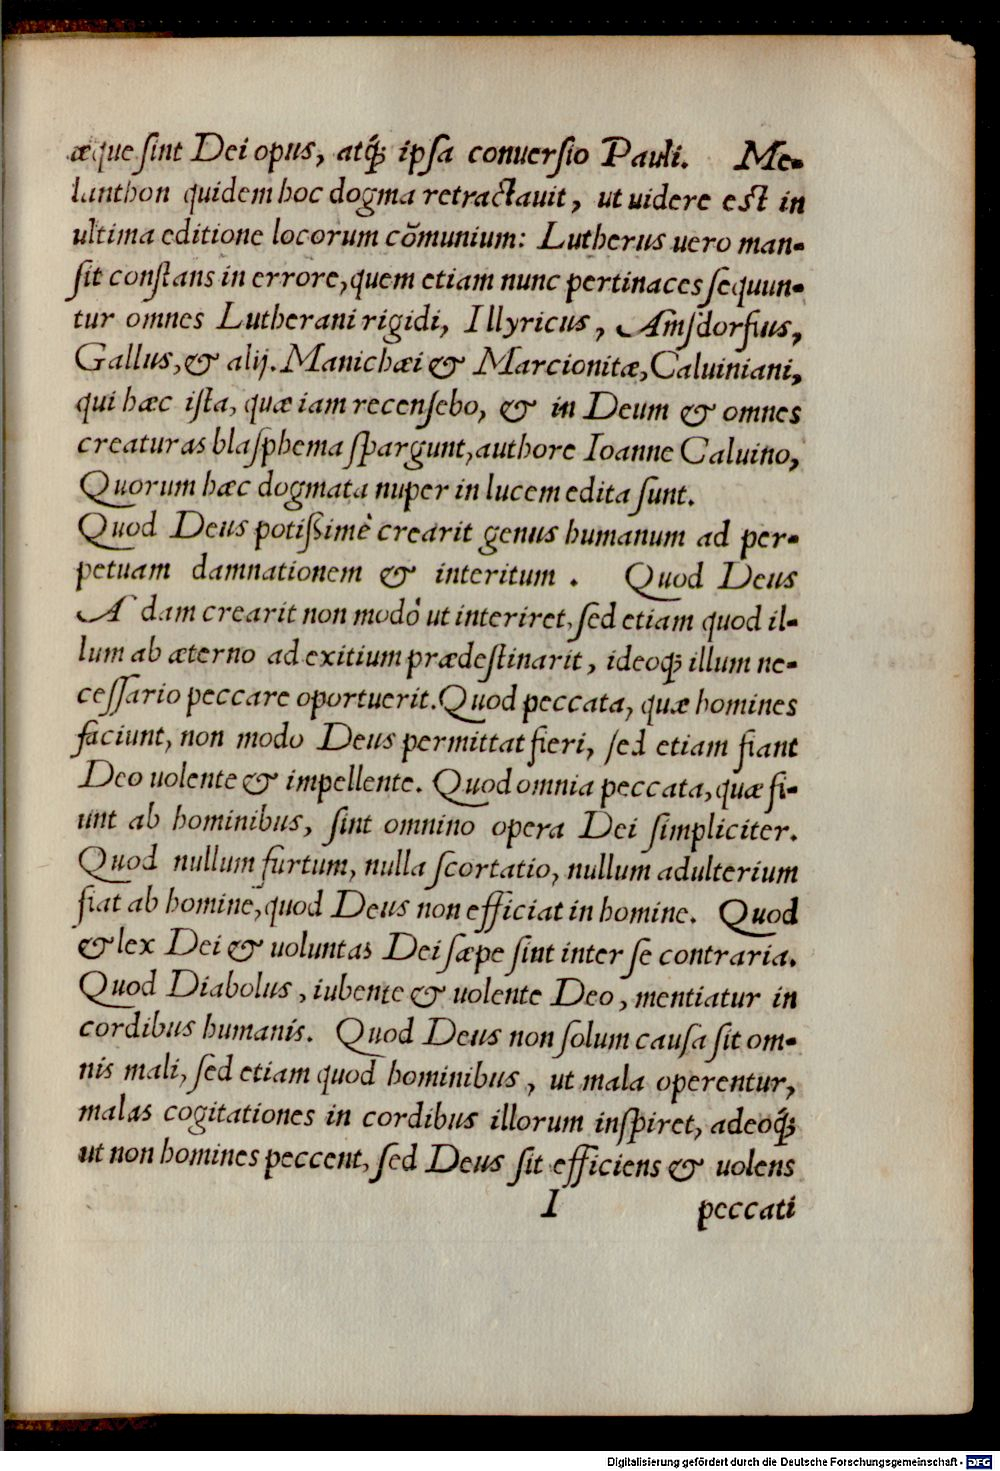 æque sint Dei opus, atq́; ipsa conuersio Pauli. Me-
lanthon quidem hoc dogma retractauit, ut uidere est in
ultima editione locorum cōmunium: Lutherus uero man-
sit constans in errore, quem etiam nunc pertinaces sequun-
tur omnes Lutherani rigidi, Illyricus, Amsdorfius,
Gallus, & alij. Manichæi & Marcionitæ, Caluiniani,
qui hæc ista, quæ iam recensebo, & in Deum & omnes
creaturas blasphema spargunt, authore Ioanne Caluino,
Quorum hæc dogmata nuper in lucem edita sunt.
Quod Deus potissimè crearit genus humanum ad per-
petuam damnationem & interitum. Quod Deus
Adam crearit non modò ut interiret, sed etiam quod il-
lum ab æterno ad exitium prædestinarit, ideoq́; illum ne-
cessario peccare oportuerit. Quod peccata, quæ homines
faciunt, non modo Deus permittat fieri, sed etiam fiant
Deo uolente & impellente. Quod omnia peccata, quæ fi-
unt ab hominibus, sint omnino opera Dei simpliciter.
Quod nullum furtum, nulla scortatio, nullum adulterium
fiat ab homine, quod Deus non efficiat in homine. Quod
& lex Dei & uoluntas Dei sæpe sint inter se contraria.
Quod Diabolus, iubente & uolente Deo, mentiatur in
cordibus humanis. Quod Deus non solum causa sit om-
nis mali, sed etiam quod hominibus, ut mala operentur,
malas cogitationes in cordibus illorum inspiret, adeoq́;
ut non homines peccent, sed Deus sit efficiens & uolens
I peccati
Digitalisierung gefördert durch die Deutsche Forschungsgemeinschaft - DFG